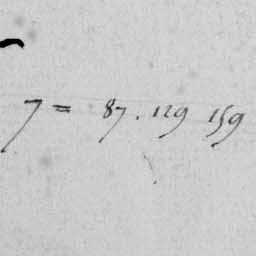 7 = 87. 129 159